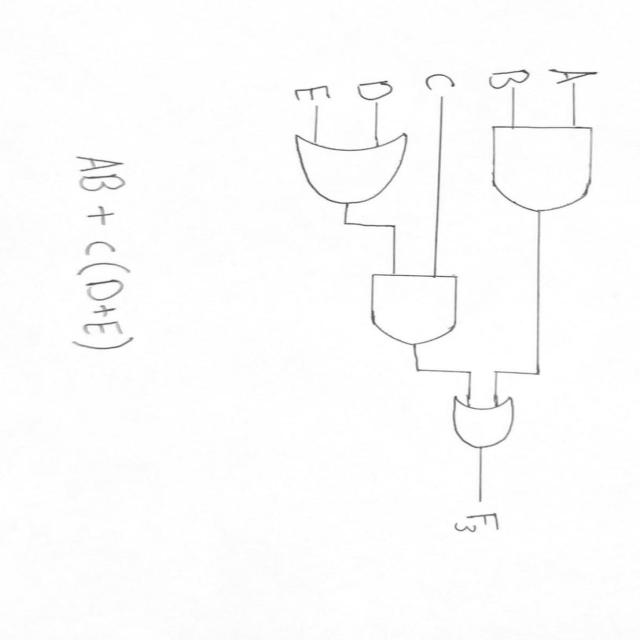 A
B
C
D
E
F3
AB + C(D+E)